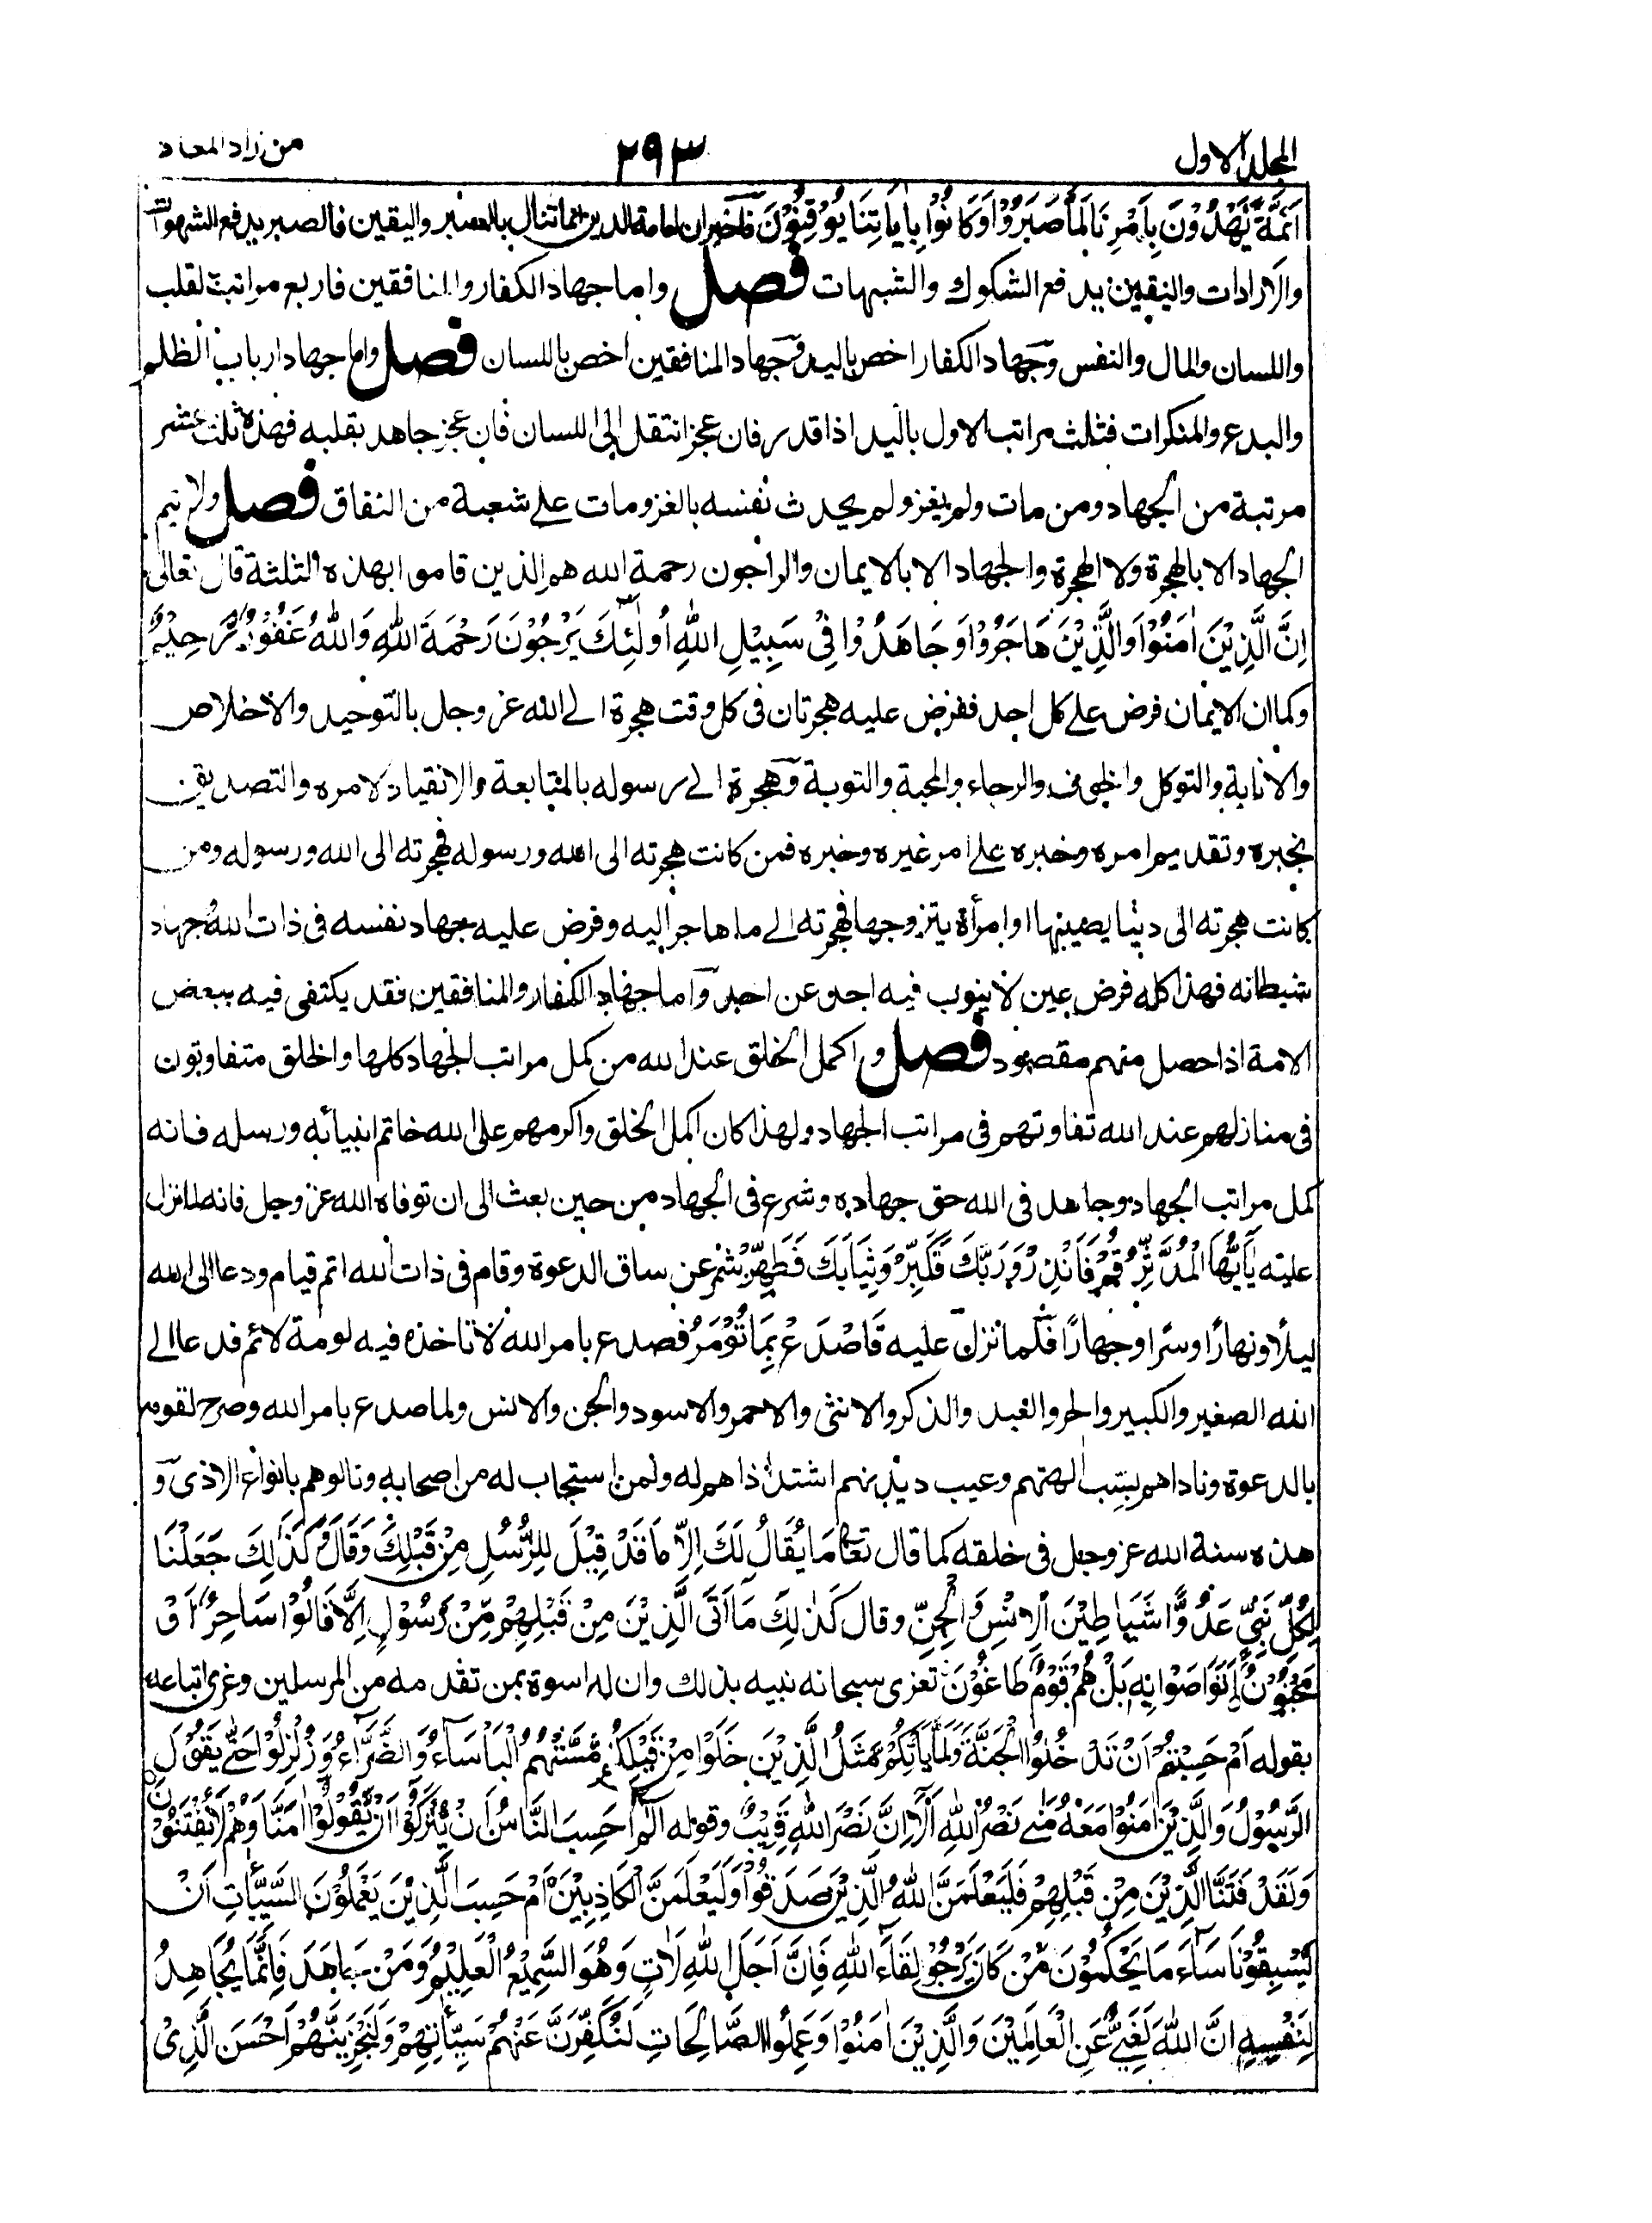 المجلد الاول
٢٩٣
من زاد المعاد
اَئِمَّةً يَّهْدُوْنَ بِاَمْرِنَا لَمَّا صَبَرُوْا وَكَانُوْا بِاٰيَاتِنَا يُوْقِنُوْنَ فاخبر ان امامة الدين انما تنال بالصبر واليقين فالصبر يدفع الشهوات
والارادات واليقين يدفع الشكوك والشبهات فصل واما جهاد الكفار والمنافقين فاربع مراتب بالقلب
واللسان والمال والنفس وجهاد الكفار اخص باليد وجهاد المنافقين اخص باللسان فصل واما جهاد ارباب الظلم
والبدع والمنكرات فثلث مراتب الاول باليد اذا قدر فان عجز انتقل الى اللسان فان عجز جاهد بقلبه فهذه ثلث عشر
مرتبة من الجهاد ومن مات ولم يغز ولم يحدث نفسه بالغزو مات على شعبة من النفاق فصل ولا يتم
الجهاد الا بالهجرة ولا الهجرة والجهاد الا بالايمان والراجون رحمة الله هم الذين قاموا بهذه الثلثة قال تعالى
اِنَّ الَّذِيْنَ اٰمَنُوْا وَالَّذِيْنَ هَاجَرُوْا وَجَاهَدُوْا فِيْ سَبِيْلِ اللّٰهِ اُولٰٓئِكَ يَرْجُوْنَ رَحْمَةَ اللّٰهِ وَاللّٰهُ غَفُوْرٌ رَّحِيْمٌ
وكما ان الايمان فرض على كل احد ففرض عليه هجرتان فى كل وقت هجرة الى الله عز وجل بالتوحيد والاخلاص
والانابة والتوكل والخوف والرجاء والمحبة والتوبة وهجرة الى رسوله بالمتابعة والانقياد لامره والتصديق
بخبره وتقديم امره وخبره على امر غيره وخبره فمن كانت هجرته الى الله ورسوله فهجرته الى الله ورسوله ومن
كانت هجرته الى دنيا يصيبها او امرأة يتزوجها فهجرته الى ما هاجر اليه وفرض عليه جهاد نفسه فى ذات الله وجهاد
شيطانه فهذا كله فرض عين لا ينوب فيه احد عن احد واما جهاد الكفار والمنافقين فقد يكتفى فيه ببعض
الامة اذا حصل منهم مقصود فصل واكمل الخلق عند الله من كمل مراتب الجهاد كلها والخلق متفاوتون
فى منازلهم عند الله تفاوتهم فى مراتب الجهاد ولهذا كان اكمل الخلق واكرمهم على الله خاتم انبيائه ورسله فانه
كمل مراتب الجهاد وجاهد فى الله حق جهاده وشرع فى الجهاد من حين بعث الى ان توفاه الله عز وجل فانه لما نزل
عليه يٰٓاَيُّهَا الْمُدَّثِّرُ قُمْ فَاَنْذِرْ وَرَبَّكَ فَكَبِّرْ وَثِيَابَكَ فَطَهِّرْ شمر عن ساق الدعوة وقام فى ذات الله اتم قيام ودعا الى الله
ليلًا ونهارًا وسرا وجهارًا فلما نزل عليه فَاصْدَعْ بِمَا تُؤْمَرُ فصدع بامر الله لا تاخذه فيه لومة لائم فدعا الى
الله الصغير والكبير والحر والعبد والذكر والانثى والاحمر والاسود والجن والانس ولما صدع بامر الله وصرح لقومه
بالدعوة وناداهم بسب الهتهم وعيب دينهم اشتد اذاهم له ولمن استجاب له من اصحابه ونالوهم بانواع الاذى و
هذه سنة الله عز وجل فى خلقه كما قال تعا مَا يُقَالُ لَكَ اِلَّا مَا قَدْ قِيْلَ لِلرُّسُلِ مِنْ قَبْلِكَ وَقَالَ كَذٰلِكَ جَعَلْنَا
لِكُلِّ نَبِيٍّ عَدُوًّا شَيَاطِيْنَ الْاِنْسِ وَالْجِنِّ وقال كَذٰلِكَ مَا اَتَى الَّذِيْنَ مِنْ قَبْلِهِمْ مِّنْ رَسُوْلٍ اِلَّا قَالُوْا سَاحِرٌ اَوْ
مَجْنُوْنٌ اَتَوَاصَوْا بِهٖ بَلْ هُمْ قَوْمٌ طَاغُوْنَ تعزى سبحانه نبيه بذلك وان له اسوة بمن تقدمه من المرسلين وعزى اتباعه
بقوله اَمْ حَسِبْتُمْ اَنْ تَدْخُلُوا الْجَنَّةَ وَلَمَّا يَأْتِكُمْ مَّثَلُ الَّذِيْنَ خَلَوْا مِنْ قَبْلِكُمْ مَّسَّتْهُمُ الْبَأْسَآءُ وَالضَّرَّآءُ وَزُلْزِلُوْا حَتّٰى يَقُوْلَ
الرَّسُوْلُ وَالَّذِيْنَ اٰمَنُوْا مَعَهٗ مَتٰى نَصْرُ اللّٰهِ اَلَآ اِنَّ نَصْرَ اللّٰهِ قَرِيْبٌ وقوله الٓمّٓ اَحَسِبَ النَّاسُ اَنْ يُّتْرَكُوْٓا اَنْ يَّقُوْلُوْٓا اٰمَنَّا وَهُمْ لَا يُفْتَنُوْنَ
وَلَقَدْ فَتَنَّا الَّذِيْنَ مِنْ قَبْلِهِمْ فَلَيَعْلَمَنَّ اللّٰهُ الَّذِيْنَ صَدَقُوْا وَلَيَعْلَمَنَّ الْكَاذِبِيْنَ اَمْ حَسِبَ الَّذِيْنَ يَعْمَلُوْنَ السَّيِّاٰتِ اَنْ
يَّسْبِقُوْنَا سَآءَ مَا يَحْكُمُوْنَ مَنْ كَانَ يَرْجُوْا لِقَآءَ اللّٰهِ فَاِنَّ اَجَلَ اللّٰهِ لَاٰتٍ وَهُوَ السَّمِيْعُ الْعَلِيْمُ وَمَنْ جَاهَدَ فَاِنَّمَا يُجَاهِدُ
لِنَفْسِهٖ اِنَّ اللّٰهَ لَغَنِيٌّ عَنِ الْعَالَمِيْنَ وَالَّذِيْنَ اٰمَنُوْا وَعَمِلُوا الصَّالِحَاتِ لَنُكَفِّرَنَّ عَنْهُمْ سَيِّاٰتِهِمْ وَلَنَجْزِيَنَّهُمْ اَحْسَنَ الَّذِيْ